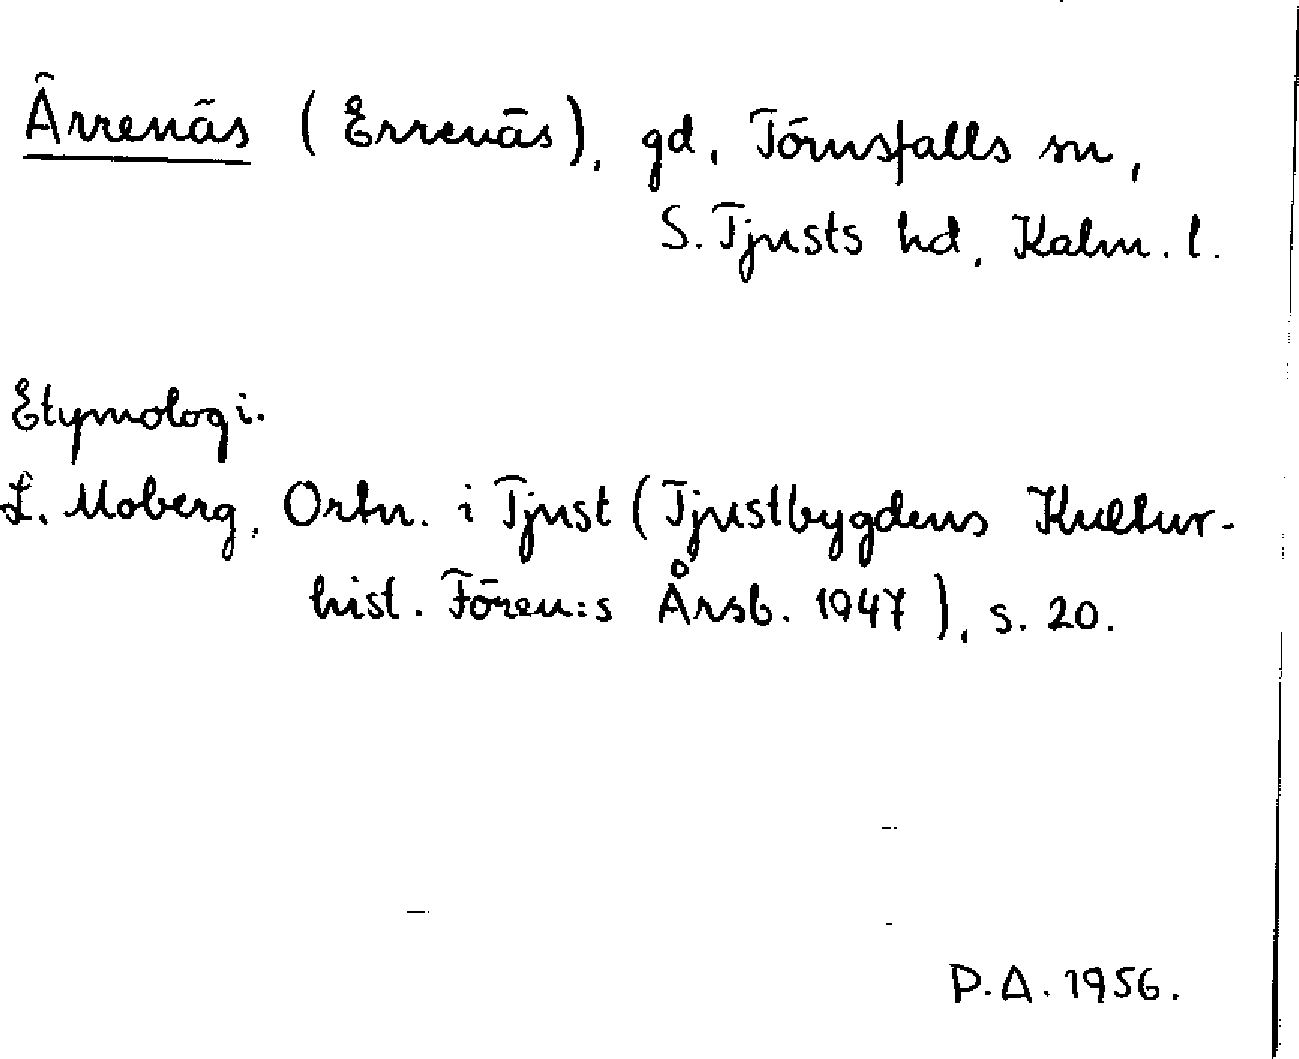 Ärrenäs (Errenäs), gd, Törnsfalls sn,
S. Tjusts hd, Kalm. l.
Etymologi.
L. Moberg, Ortn. i Tjust (Tjustbygdens Kultur-
hist. Fören:s Årsb. 1947), s. 20.
P.A. 1956.